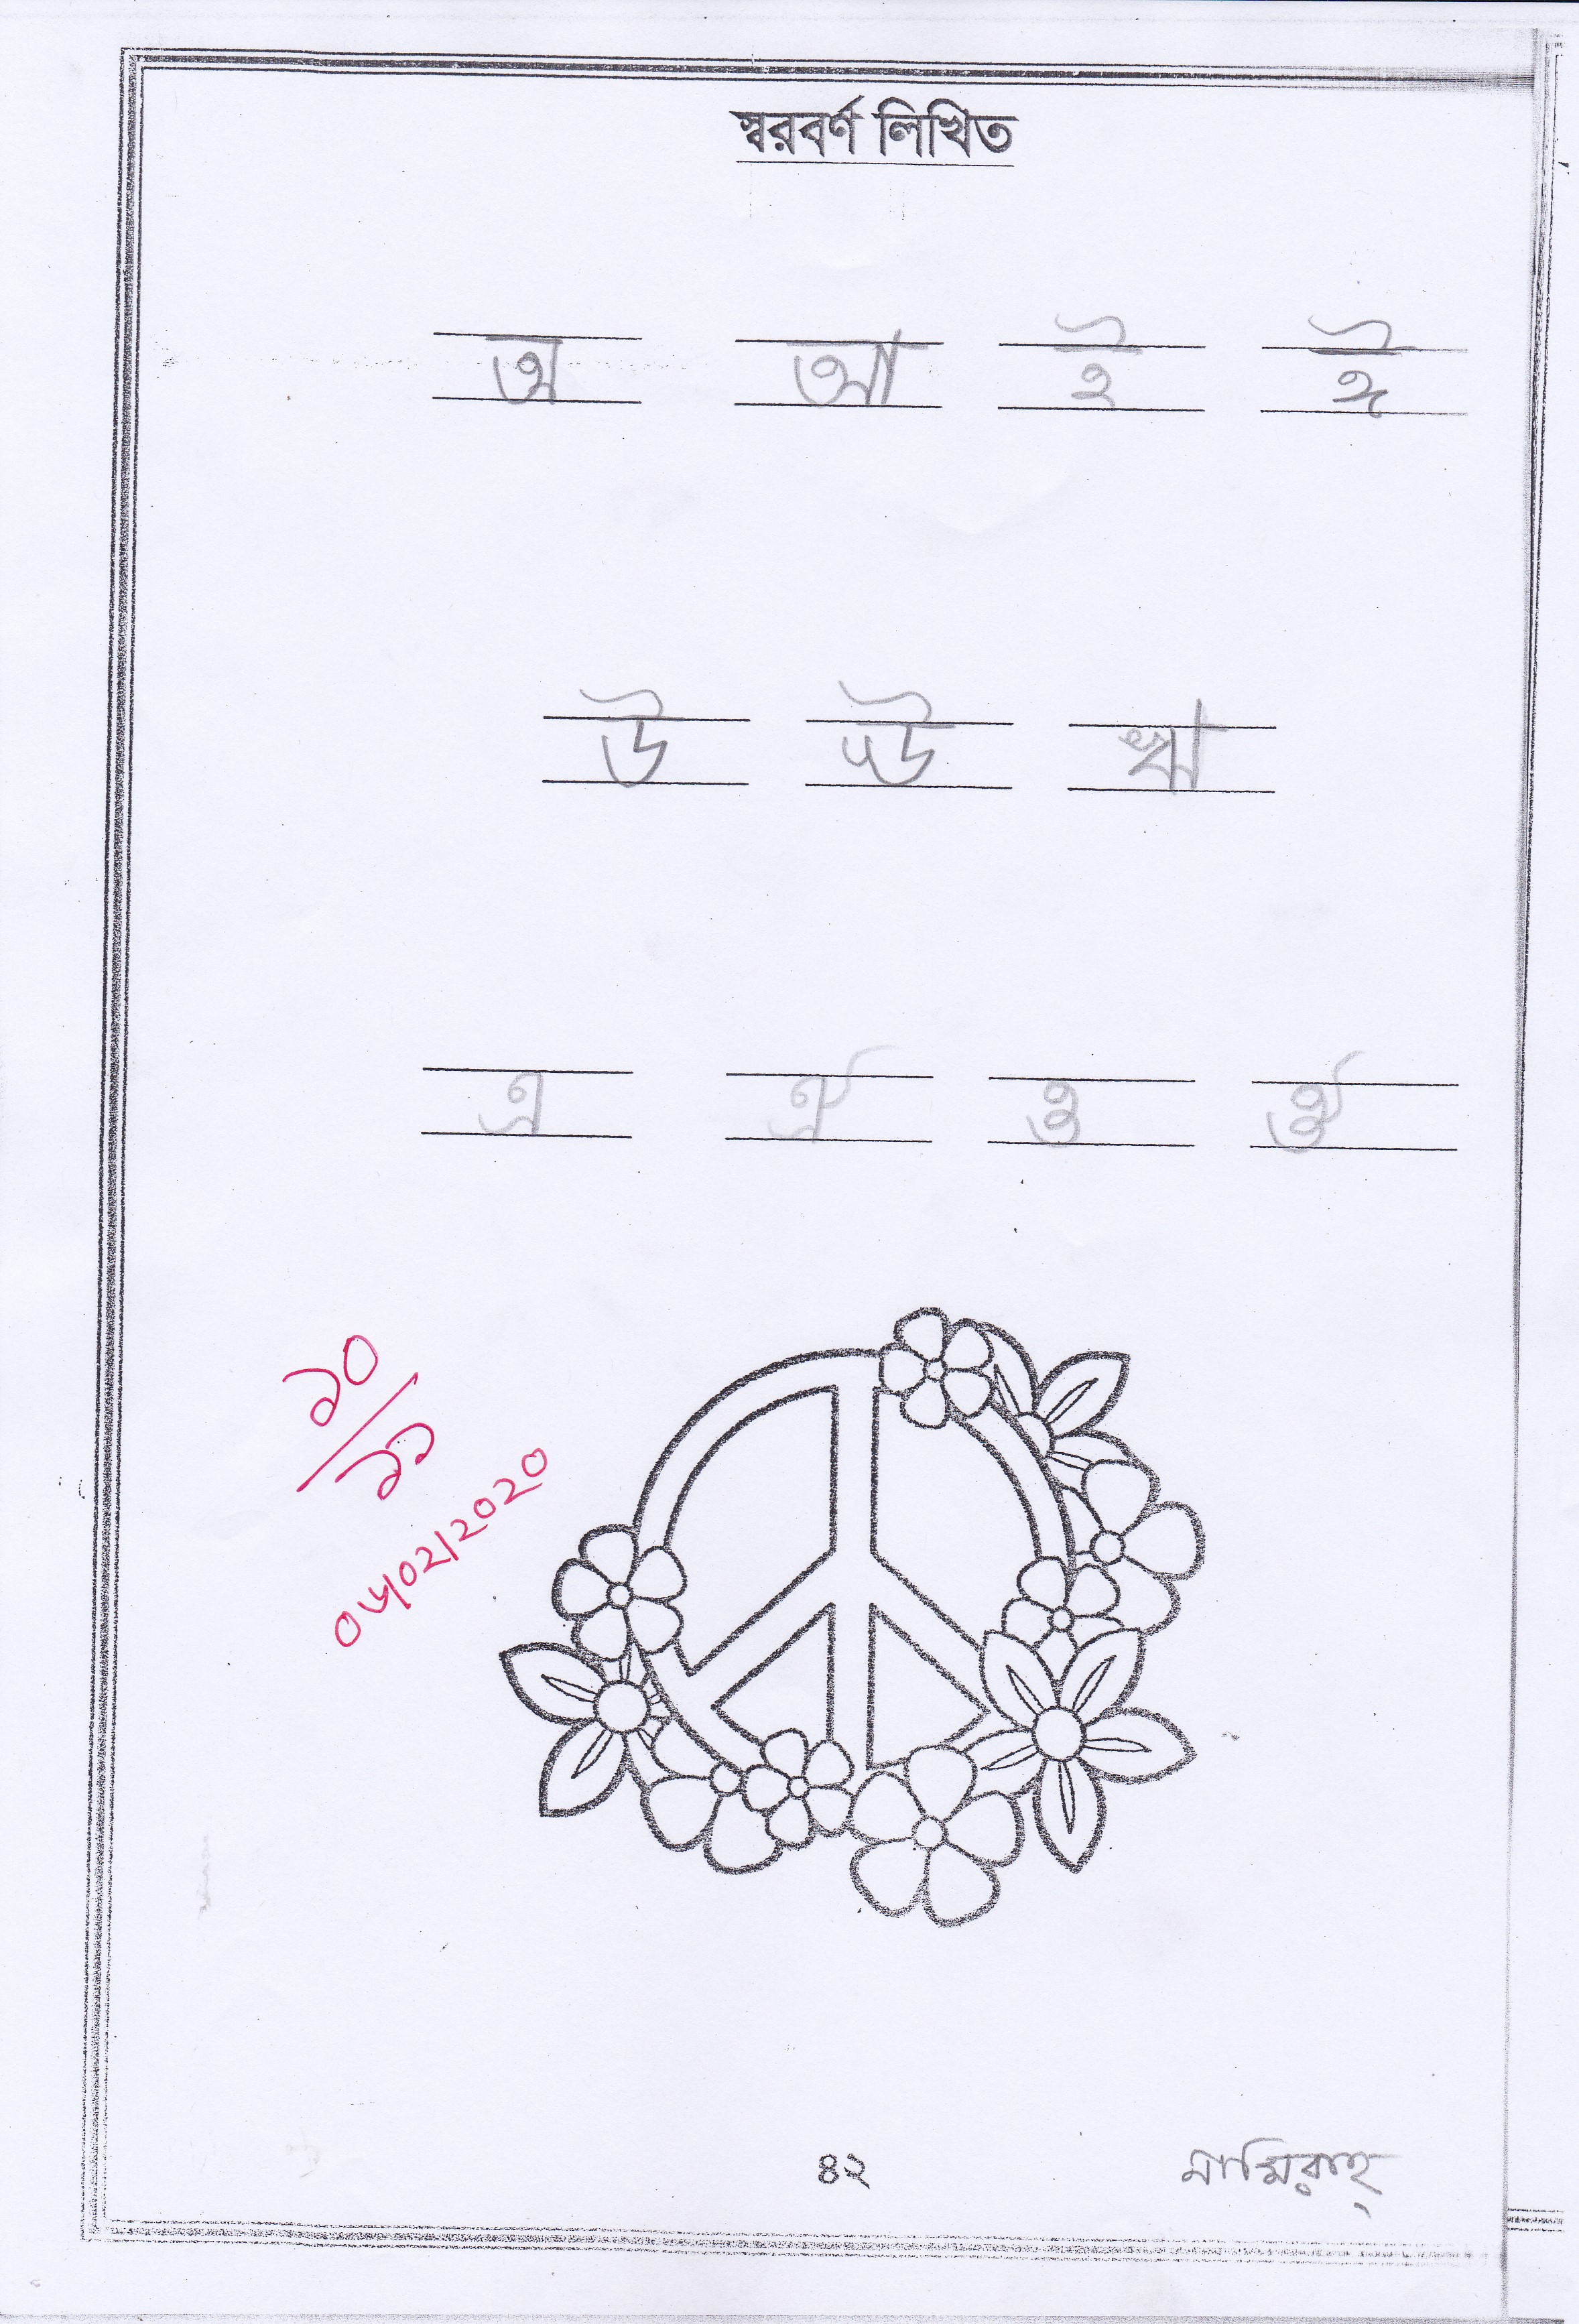 স্বরবর্ণ লিখিত
অ আ ই ঈ
উ ঊ ঋ
এ ঐ ও ঔ
১০/১১
০৬/০২/২০২০
৪২